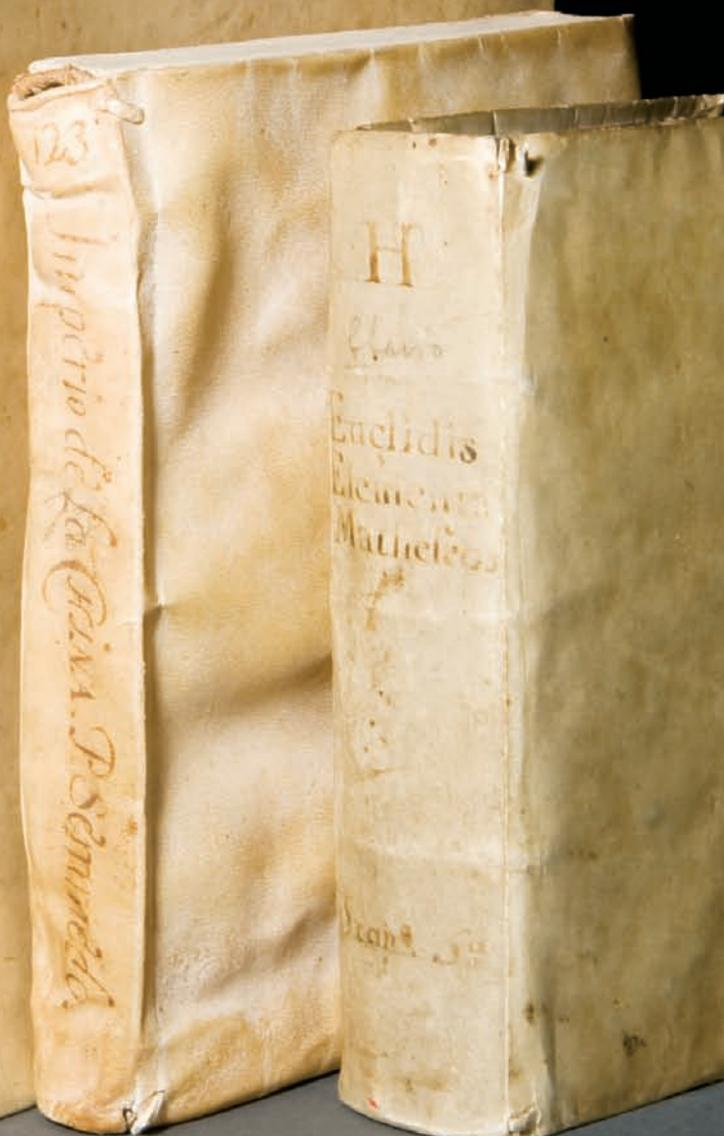 123
Imperio de La CHINA. P Semmedo,
H
Euclidis
Elementa
Matheseos